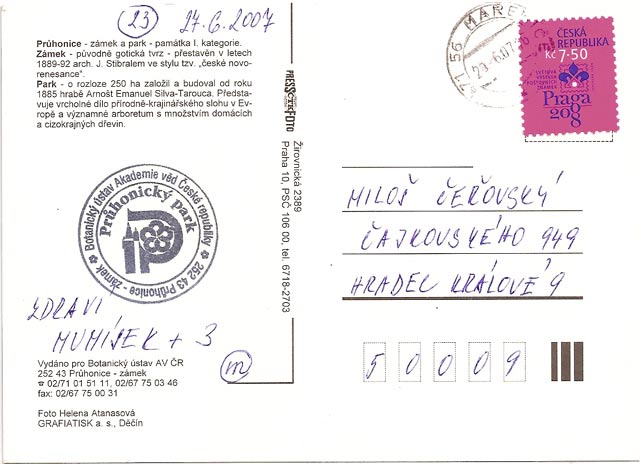 (23) 27.6.2007
Průhonice - zámek a park - památka I. kategorie.
Zámek - původně gotická tvrz - přestavěn v letech
1889-92 arch. J. Stibralem ve stylu tzv. „české novo-
renesance".
Park - o rozloze 250 ha založil a budoval od roku
1885 hrabě Arnošt Emanuel Silva-Tarouca. Předsta-
vuje vrcholné dílo přírodně-krajinářského slohu v Ev-
ropě a významné arboretum s množstvím domácích
a cizokrajných dřevin.
Botanický ústav Akademie věd České republiky
252 43 Průhonice - zámek
Průhonický park
ZDRAVÍ
MUMÍSEK + 3
Vydáno pro Botanický ústav AV ČR
252 43 Průhonice - zámek
☎ 02/71 01 51 11, 02/67 75 03 46
fax: 02/67 75 00 31
m
Foto Helena Atanasová
GRAFIATISK a. s., Děčín
PRESSFOTO
Žirovnická 2389
Praha 10, PSČ 106 00, tel. 6718-2703
71 56
ČESKÁ
REPUBLIKA
Kč 7·50
SVĚTOVÁ
VÝSTAVA
POŠTOVNÍCH
ZNÁMEK
Praga
2008
MILOŠ ČEŘOVSKÝ
ČAJKOVSKÉHO 949
HRADEC KRÁLOVÉ 9
5 0 0 0 9